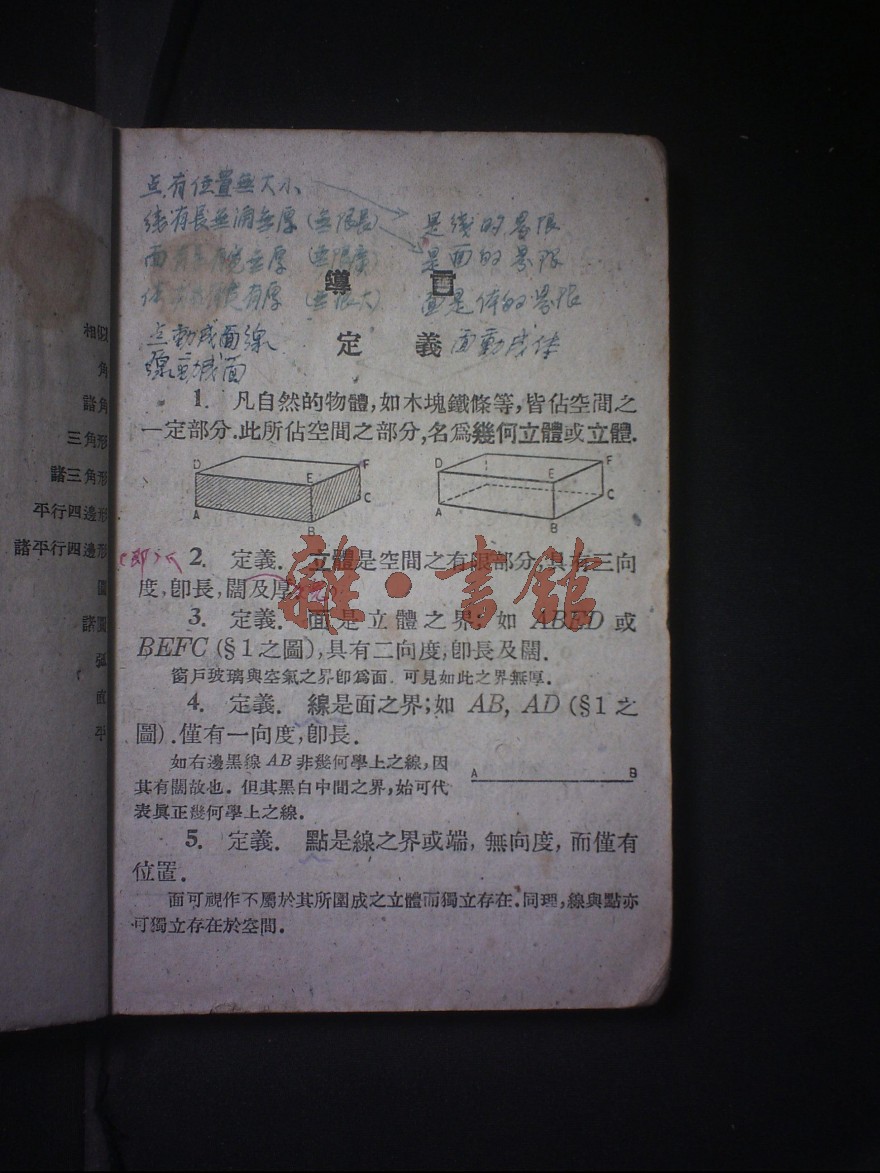 点有位置無大小
線有長無濶無厚(無限長) 是线的界限
面有長 無厚 是面的界限
有厚 (無限大) 面是体的界限
導言
点動成面線
定義 面動成体
線動成面
1. 凡自然的物體,如木塊鐵條等,皆佔空間之
一定部分.此所佔空間之部分,名爲幾何立體或立體.
D E F A B C
D E F A B C
2. 定義. 立體是空間之有限部分,具有三向
度,卽長,闊及厚
3. 定義. 面是立體之界;如 ABED 或
BEFC (§1之圖),具有二向度,卽長及闊.
窗戶玻璃與空氣之界卽爲面. 可見如此之界無厚.
4. 定義. 線是面之界;如 AB, AD (§1之
圖).僅有一向度,卽長.
如右邊黑線AB非幾何學上之線,因
其有闊故也. 但其黑白中間之界,始可代
表眞正幾何學上之線.
A B
5. 定義. 點是線之界或端, 無向度, 而僅有
位置.
面可視作不屬於其所圍成之立體而獨立存在.同理,線與點亦
可獨立存在於空間.
雜·書館
相似
角
諸角
三角形
諸三角形
平行四邊形
諸平行四邊形
圓
諸圓
弧
直
平